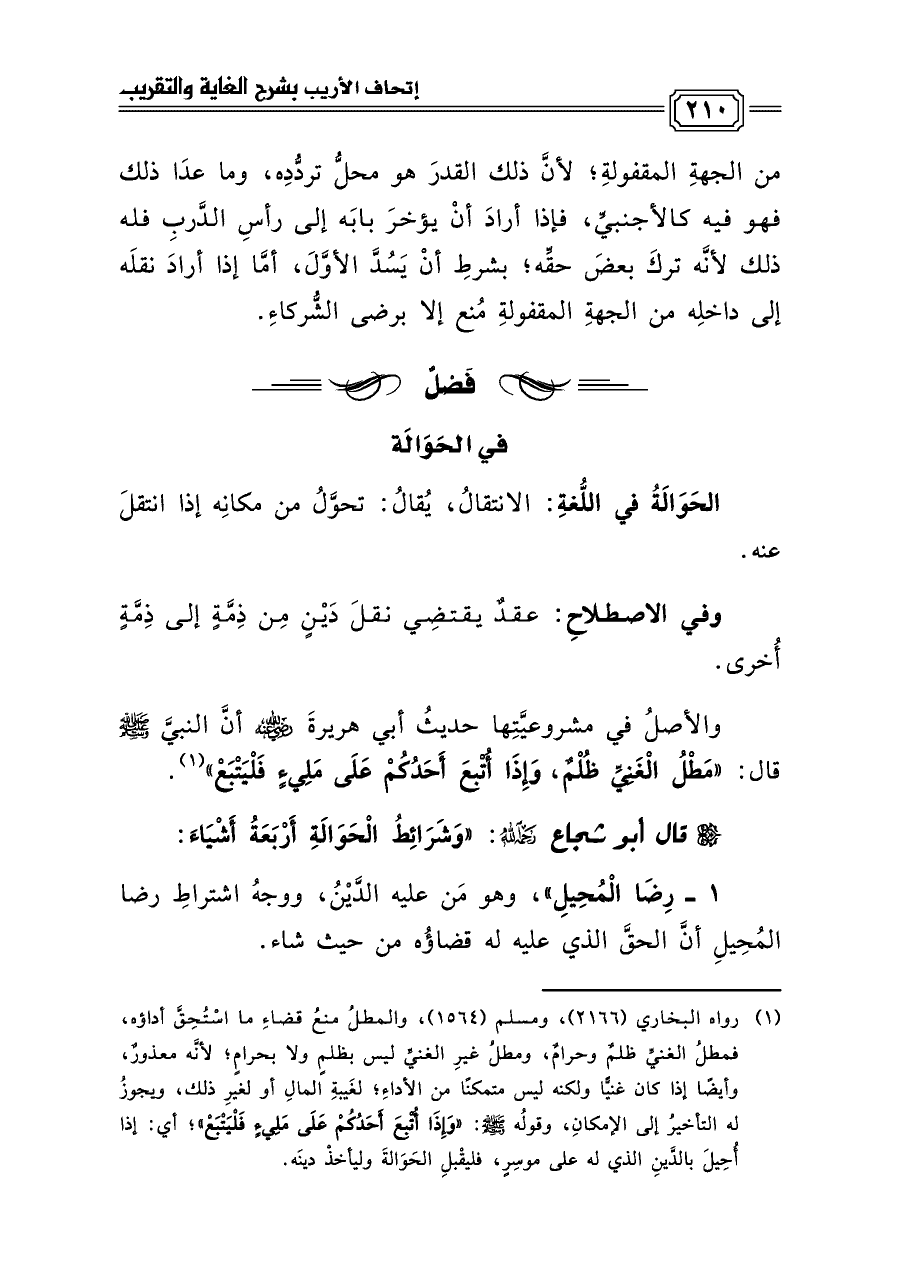 إتحاف الأريب بشرح الغاية والتقريب
٢١٠
من الجهةِ المقفولةِ؛ لأنَّ ذلك القدرَ هو محلُّ تردُّدِه، وما عدَا ذلك
فهو فيه كالأجنبيِّ، فإذا أرادَ أنْ يؤخرَ بابَه إلى رأسِ الدَّربِ فله
ذلك لأنَّه تركَ بعضَ حقِّه؛ بشرطِ أنْ يَسُدَّ الأوَّلَ، أمَّا إذا أرادَ نقلَه
إلى داخلِه من الجهةِ المقفولةِ مُنع إلا برضى الشُّركاءِ.
فَصْلٌ
في الحَوَالَة
الحَوَالَةُ في اللُّغةِ: الانتقالُ، يُقالُ: تحوَّلُ من مكانِه إذا انتقلَ
عنه.
وفي الاصطلاحِ: عقدٌ يقتضِي نقلَ دَيْنٍ مِن ذِمَّةٍ إلى ذِمَّةٍ
أُخرى.
والأصلُ في مشروعيَّتِها حديثُ أبي هريرةَ رضي الله عنه أنَّ النبيَّ ﷺ
قال: «مَطْلُ الْغَنِيِّ ظُلْمٌ، وَإِذَا أُتْبِعَ أَحَدُكُمْ عَلَى مَلِيءٍ فَلْيَتْبَعْ»(١).
قال أبو شجاع رحمه الله: «وَشَرَائِطُ الْحَوَالَةِ أَرْبَعَةُ أَشْيَاءَ:
١ - رِضَا الْمُحِيلِ»، وهو مَن عليه الدَّيْنُ، ووجهُ اشتراطِ رضا
المُحِيلِ أنَّ الحقَّ الذي عليه له قضاؤُه من حيث شاء.
(١) رواه البخاري (٢١٦٦)، ومسلم (١٥٦٤)، والمطلُ منعُ قضاءِ ما اسْتُحِقَّ أداؤه،
فمطلُ الغنيِّ ظلمٌ وحرامٌ، ومطلُ غيرِ الغنيِّ ليس بظلمٍ ولا بحرامٍ؛ لأنَّه معذورٌ،
وأيضًا إذا كان غنيًّا ولكنه ليس متمكنًا من الأداءِ؛ لغَيبةِ المالِ أو لغيرِ ذلك، ويجوزُ
له التأخيرُ إلى الإمكانِ، وقولُه ﷺ: «وَإِذَا أُتْبِعَ أَحَدُكُمْ عَلَى مَلِيءٍ فَلْيَتْبَعْ»؛ أي: إذا
أُحِيلَ بالدَّينِ الذي له على موسِرٍ، فليقْبلِ الحَوَالةَ وليأخذْ دينَه.